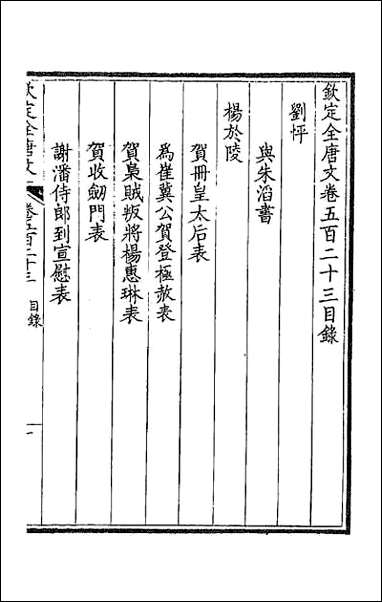 欽定全唐文卷五百二十三目錄
劉怦
與朱滔書
楊於陵
賀冊皇太后表
為崔冀公賀登極赦表
賀梟賊叛將楊惠琳表
賀收劒門表
謝潘侍郎到宣慰表
欽定全唐文
卷五百二十三 目錄
一